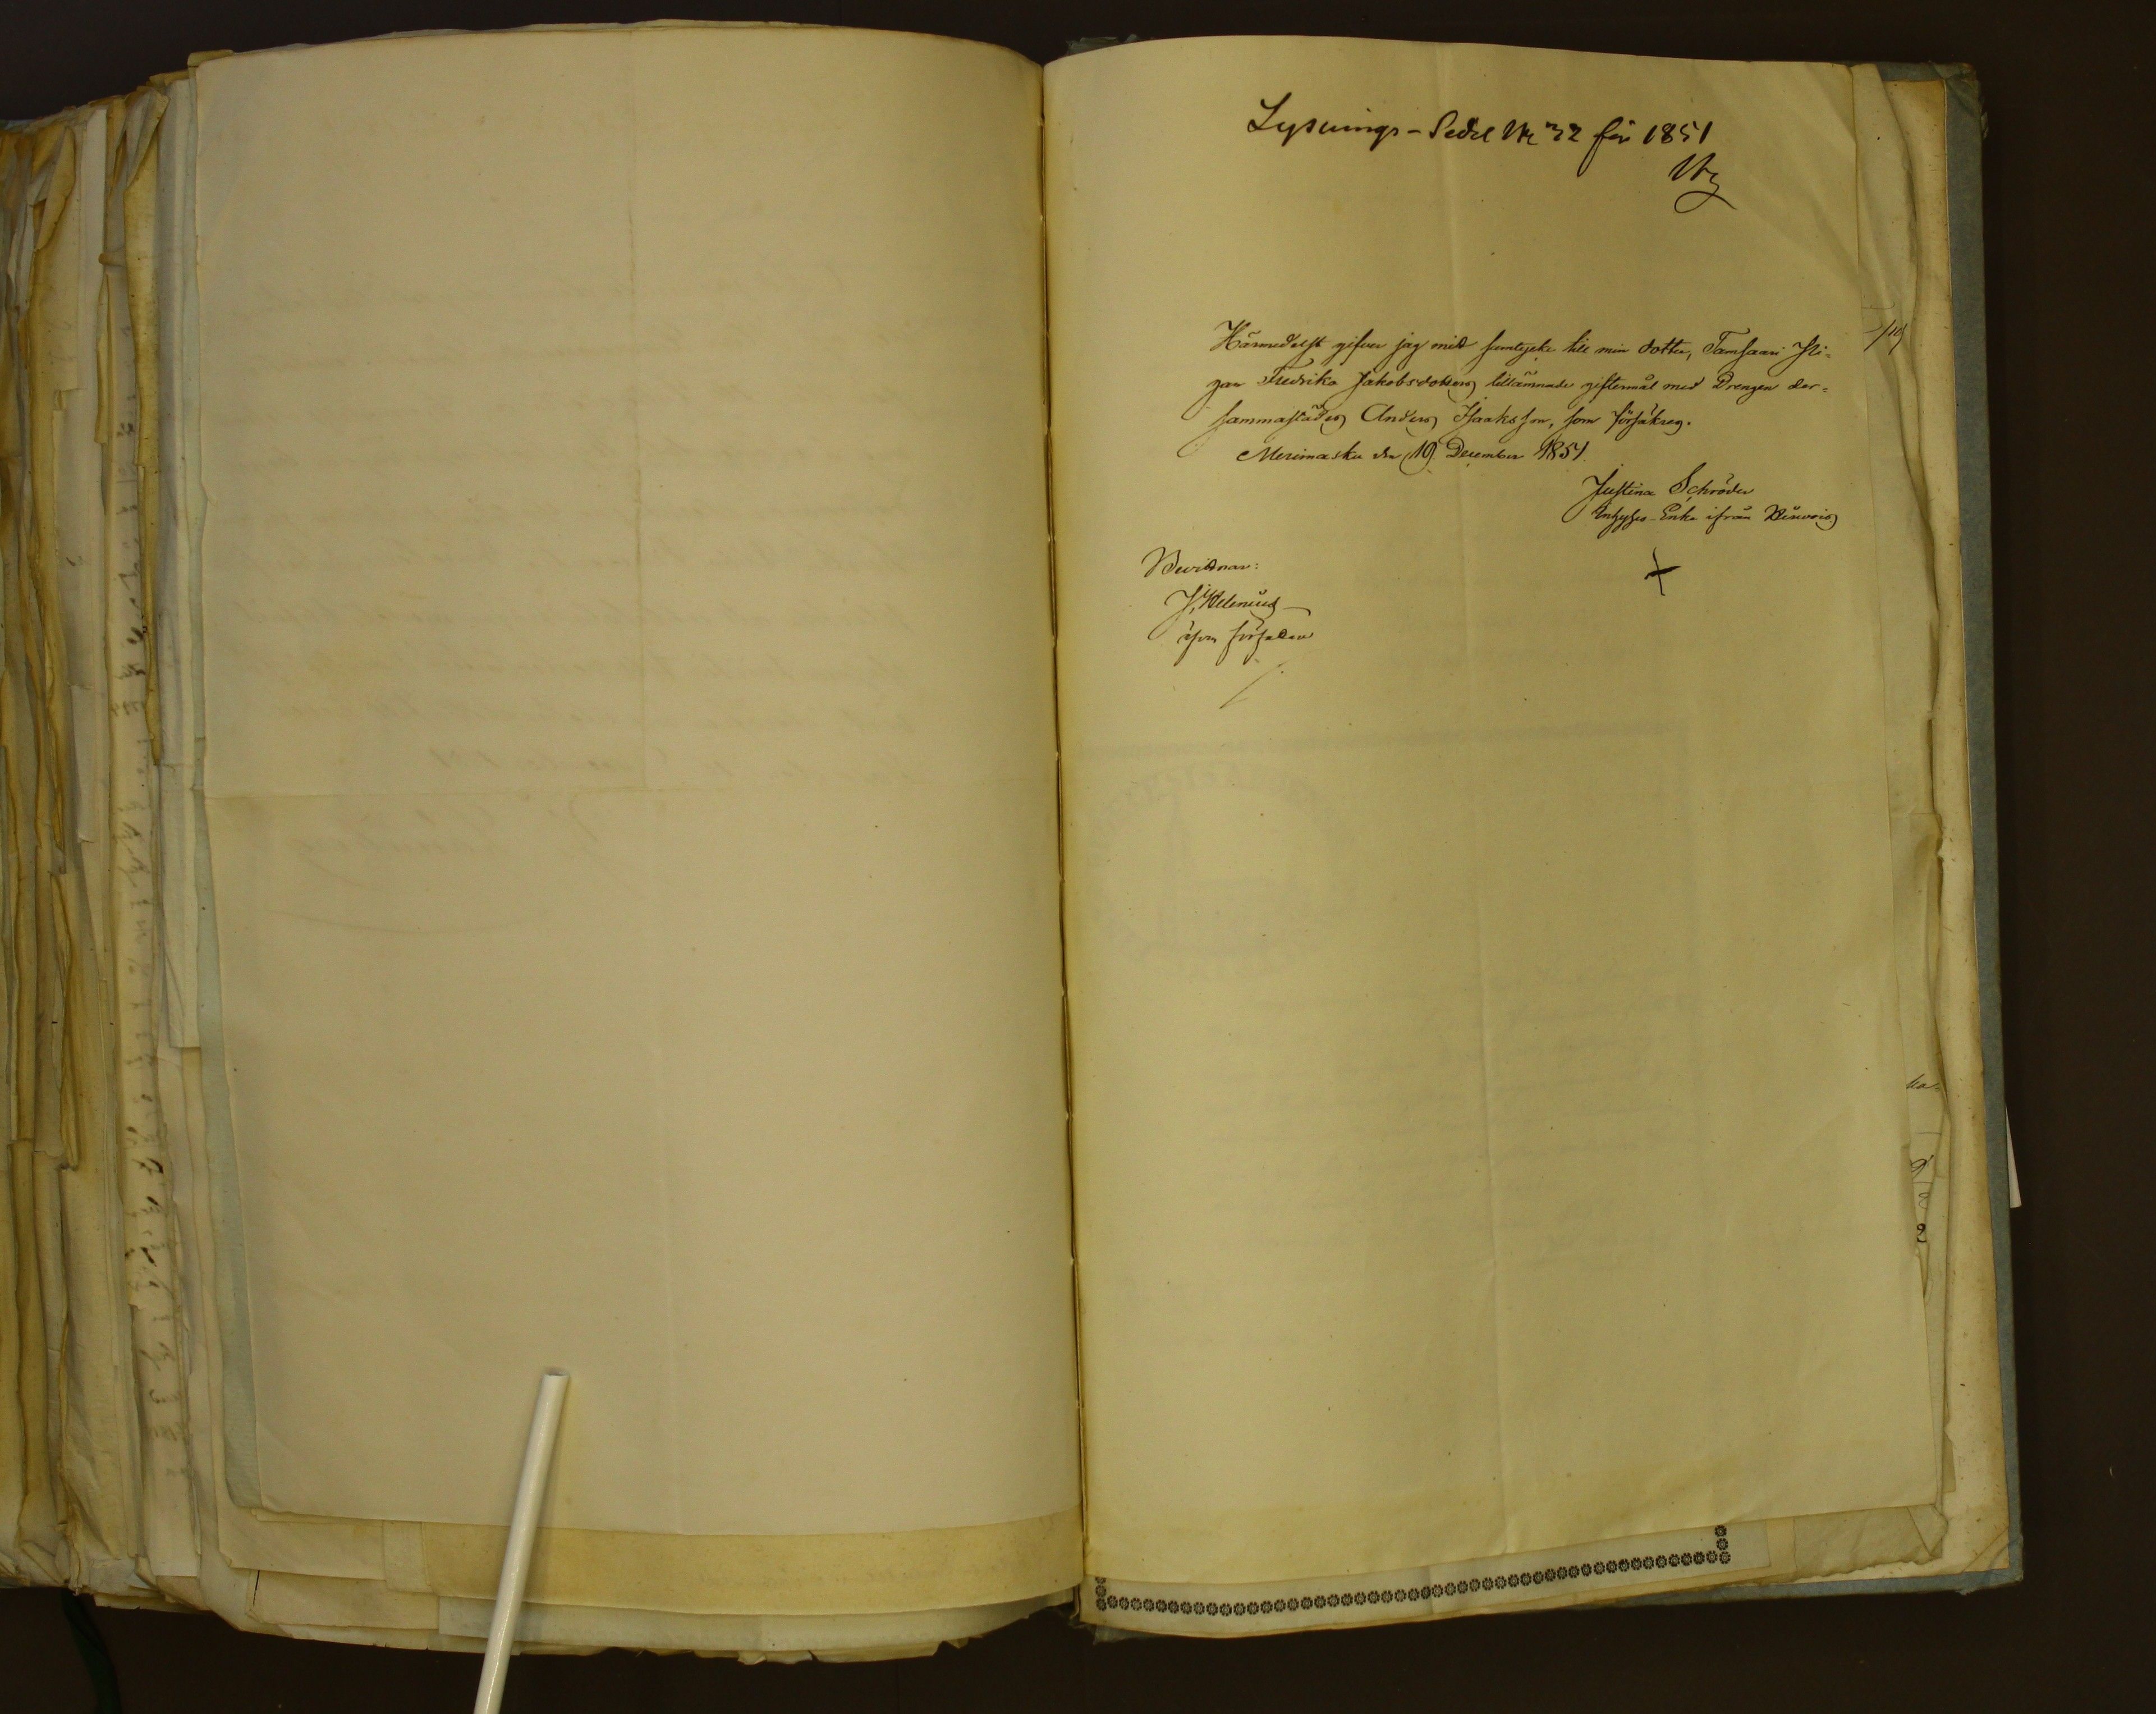 Lysnings-Sedel N: 32 för 1851
Härmedelst gifver jag mitt samtycke till min dotter, Tamsaari Pi-
gan Fredrika Jakobsdotters tillämnade giftermål med Drengen der-
sammastädes Anders Isaksson, som försäkras.
Merimasku den 19 December 1851.
Justina Schröder
Inhyses-Enka ifrån
Bevittnar:
J. Helenius
som författare